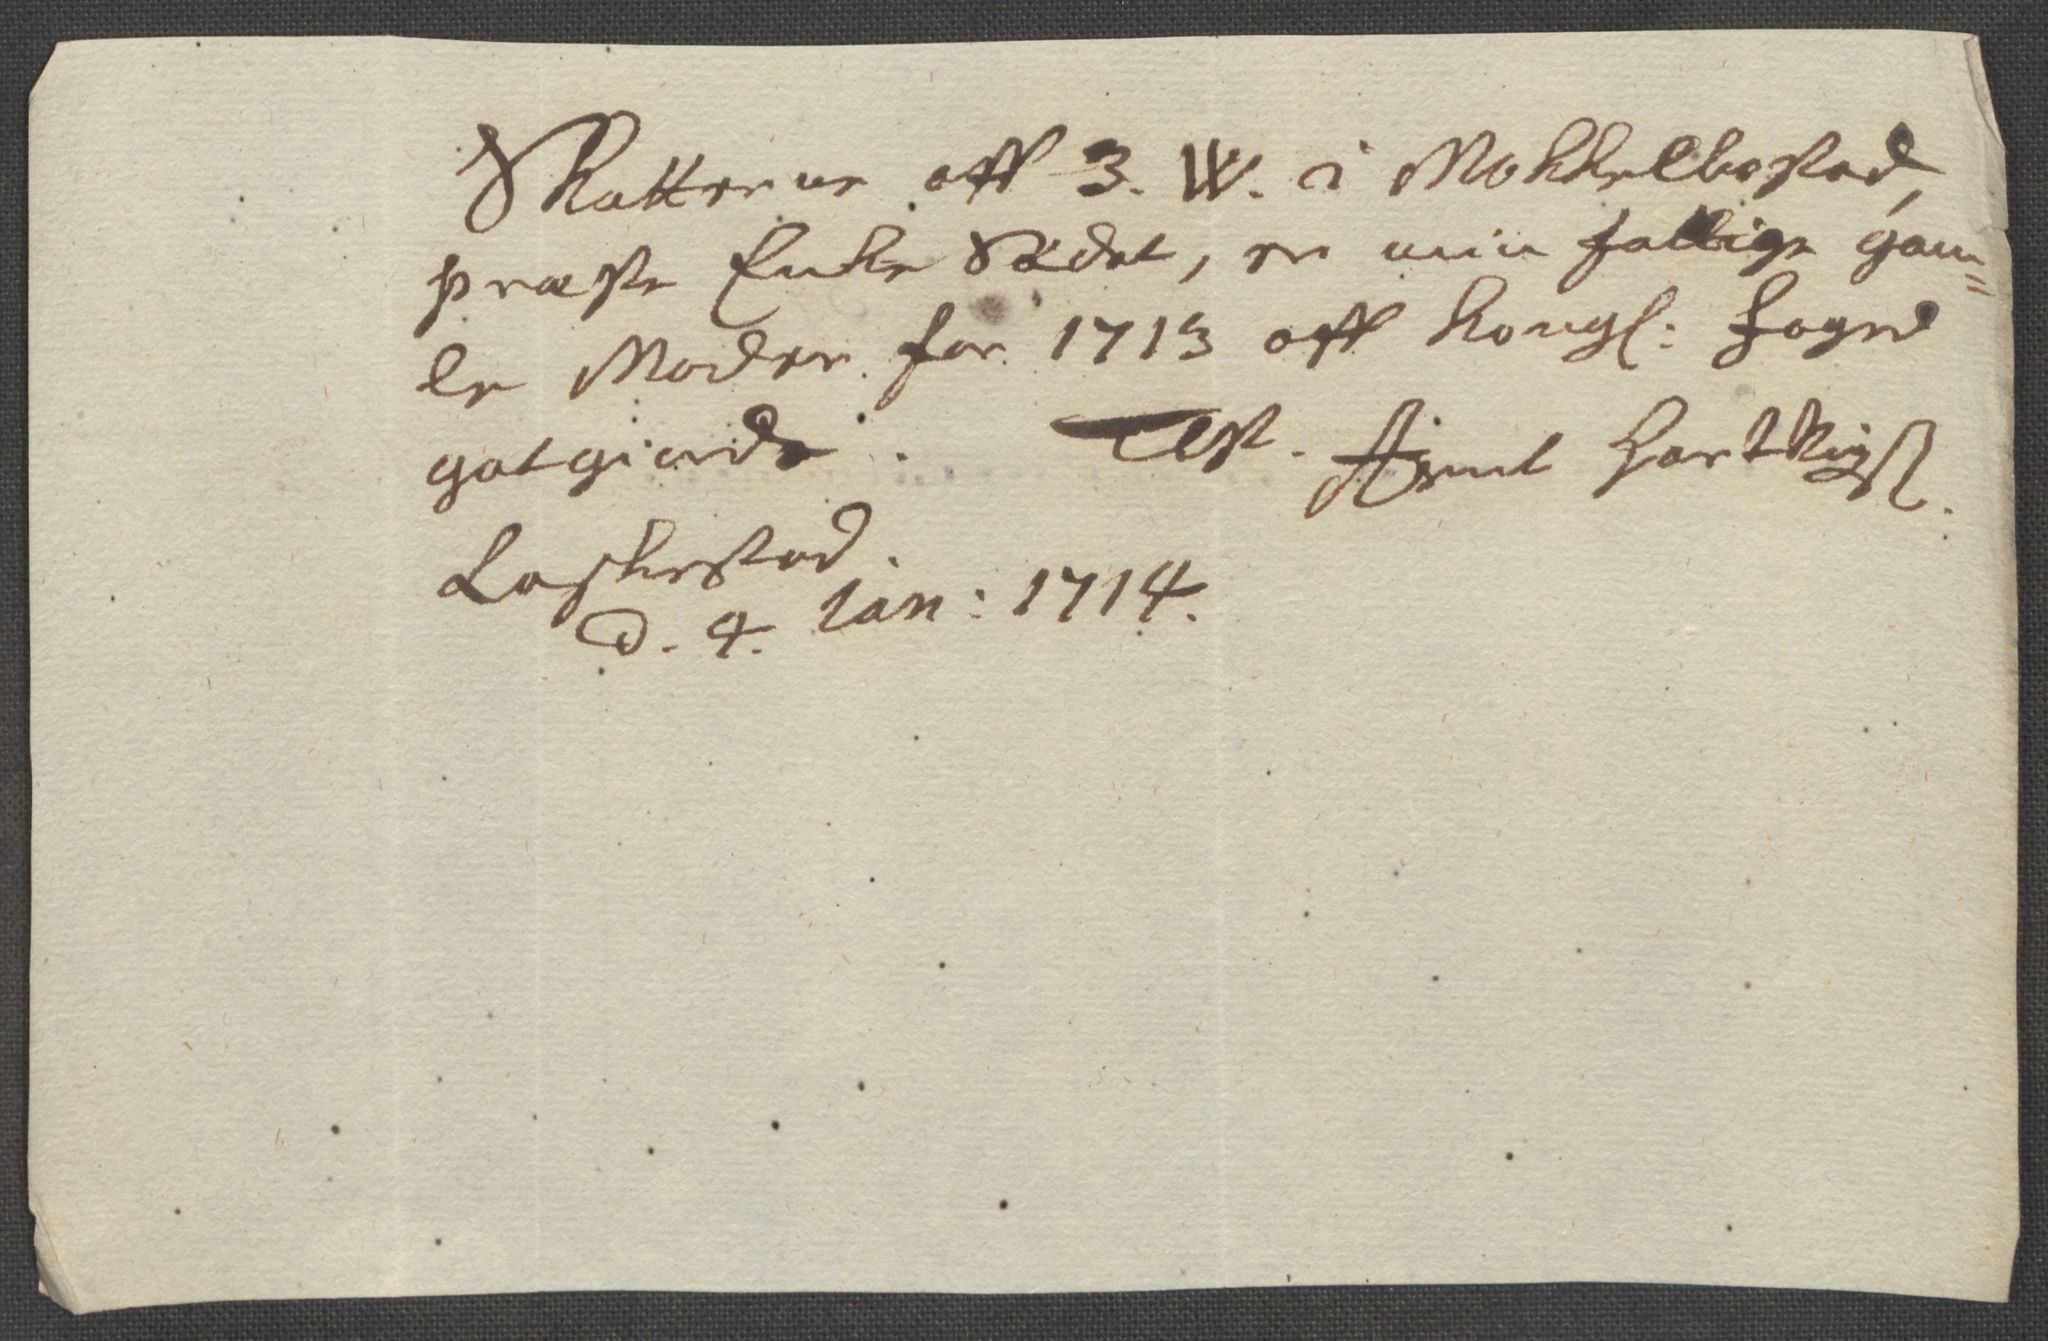 Skatterne aff 3. W. i Mokkelbostad,
præste Enke Sädet, er min fattige gam=
le Moder for 1713 aff Kongl: foged
gotgiorde. Test. Arent Hartvigs.
Laskestad.
D. 4. Jan: 1714.